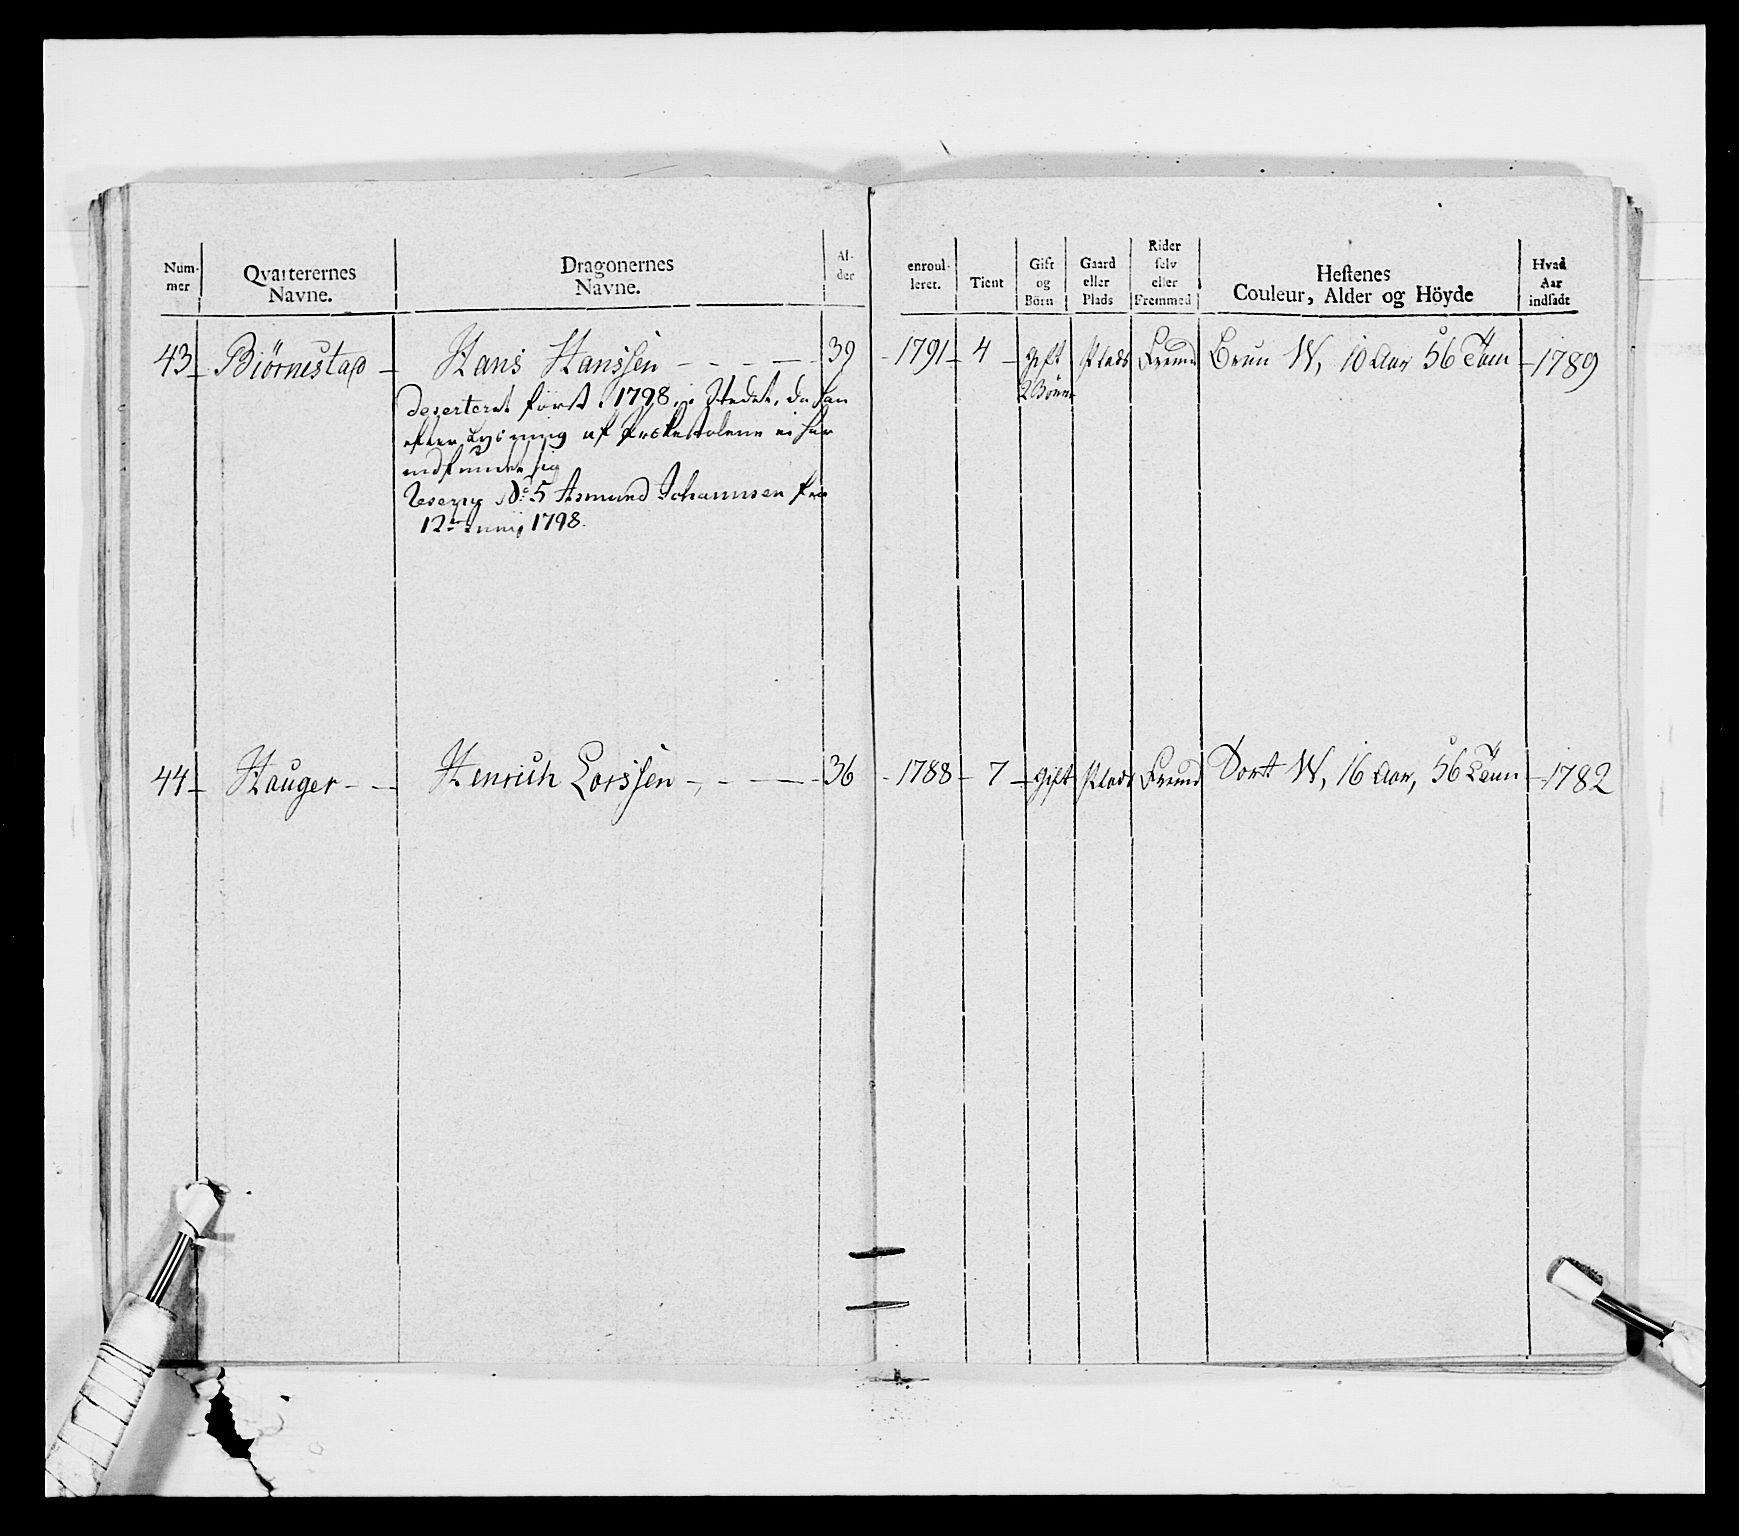 Num-
mer
Qvarterernes
Navne.
Dragonernes
Navne.
Al-
der
enroul-
leret.
Tient
Gift
og
Börn
Gaard
eller
Plads
Rider
selv
eller
Fremmed
Hestenes
Couleur, Alder og Höyde
Hvad
Aar
indsadt
43 Biörnestad Hans Hanssen 39 1791 4 gift Plads Fremd Brun W, 10 Aar 56 Tom 1789
2 Börn
deserteret först 1798, i Stedet, da han
efter Lysning af Prækestolene ei har
indfundet sig
Reserv No 5 Asmund Johannsen fra
12te Junij 1798.
44 Hauger Henrich Larssen 36 1788 7 gift Plads Fremd W, 16 Aar, 56 Tom 1782